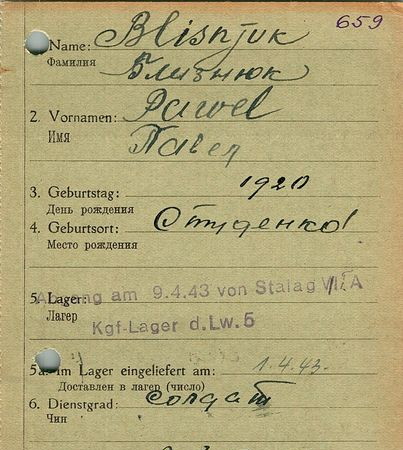 659
1. Name: Blisnjuk
Фамилия Близнюк
2. Vornamen: Pawel
Имя Павел
3. Geburtstag: 1920
День рождения
4. Geburtsort: Студенко
Место рождения
5. Lager: Abgang am 9.4.43 von Stalag VII A
Лагер Kgf-Lager d.Lw.5
5a. Im Lager eingeliefert am: 1.4.43.
Доставлен в лагер (число)
6. Dienstgrad: солдат
Чин